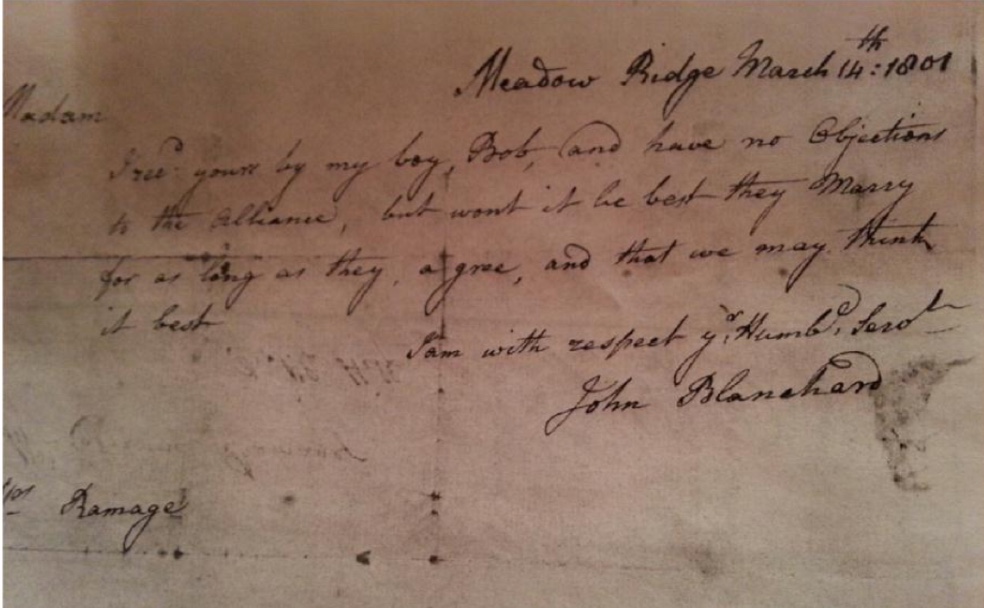 Meadow Ridge March 14th: 1801
Madam
I recd. yours by my boy, Bob, and have no Objections
to the Alliance, but wont it be best they Marry
for as long as they, agree, and that we may think
it best
I am with respect yr. Humbe. Servt
John Blanchard
Mrs Ramage